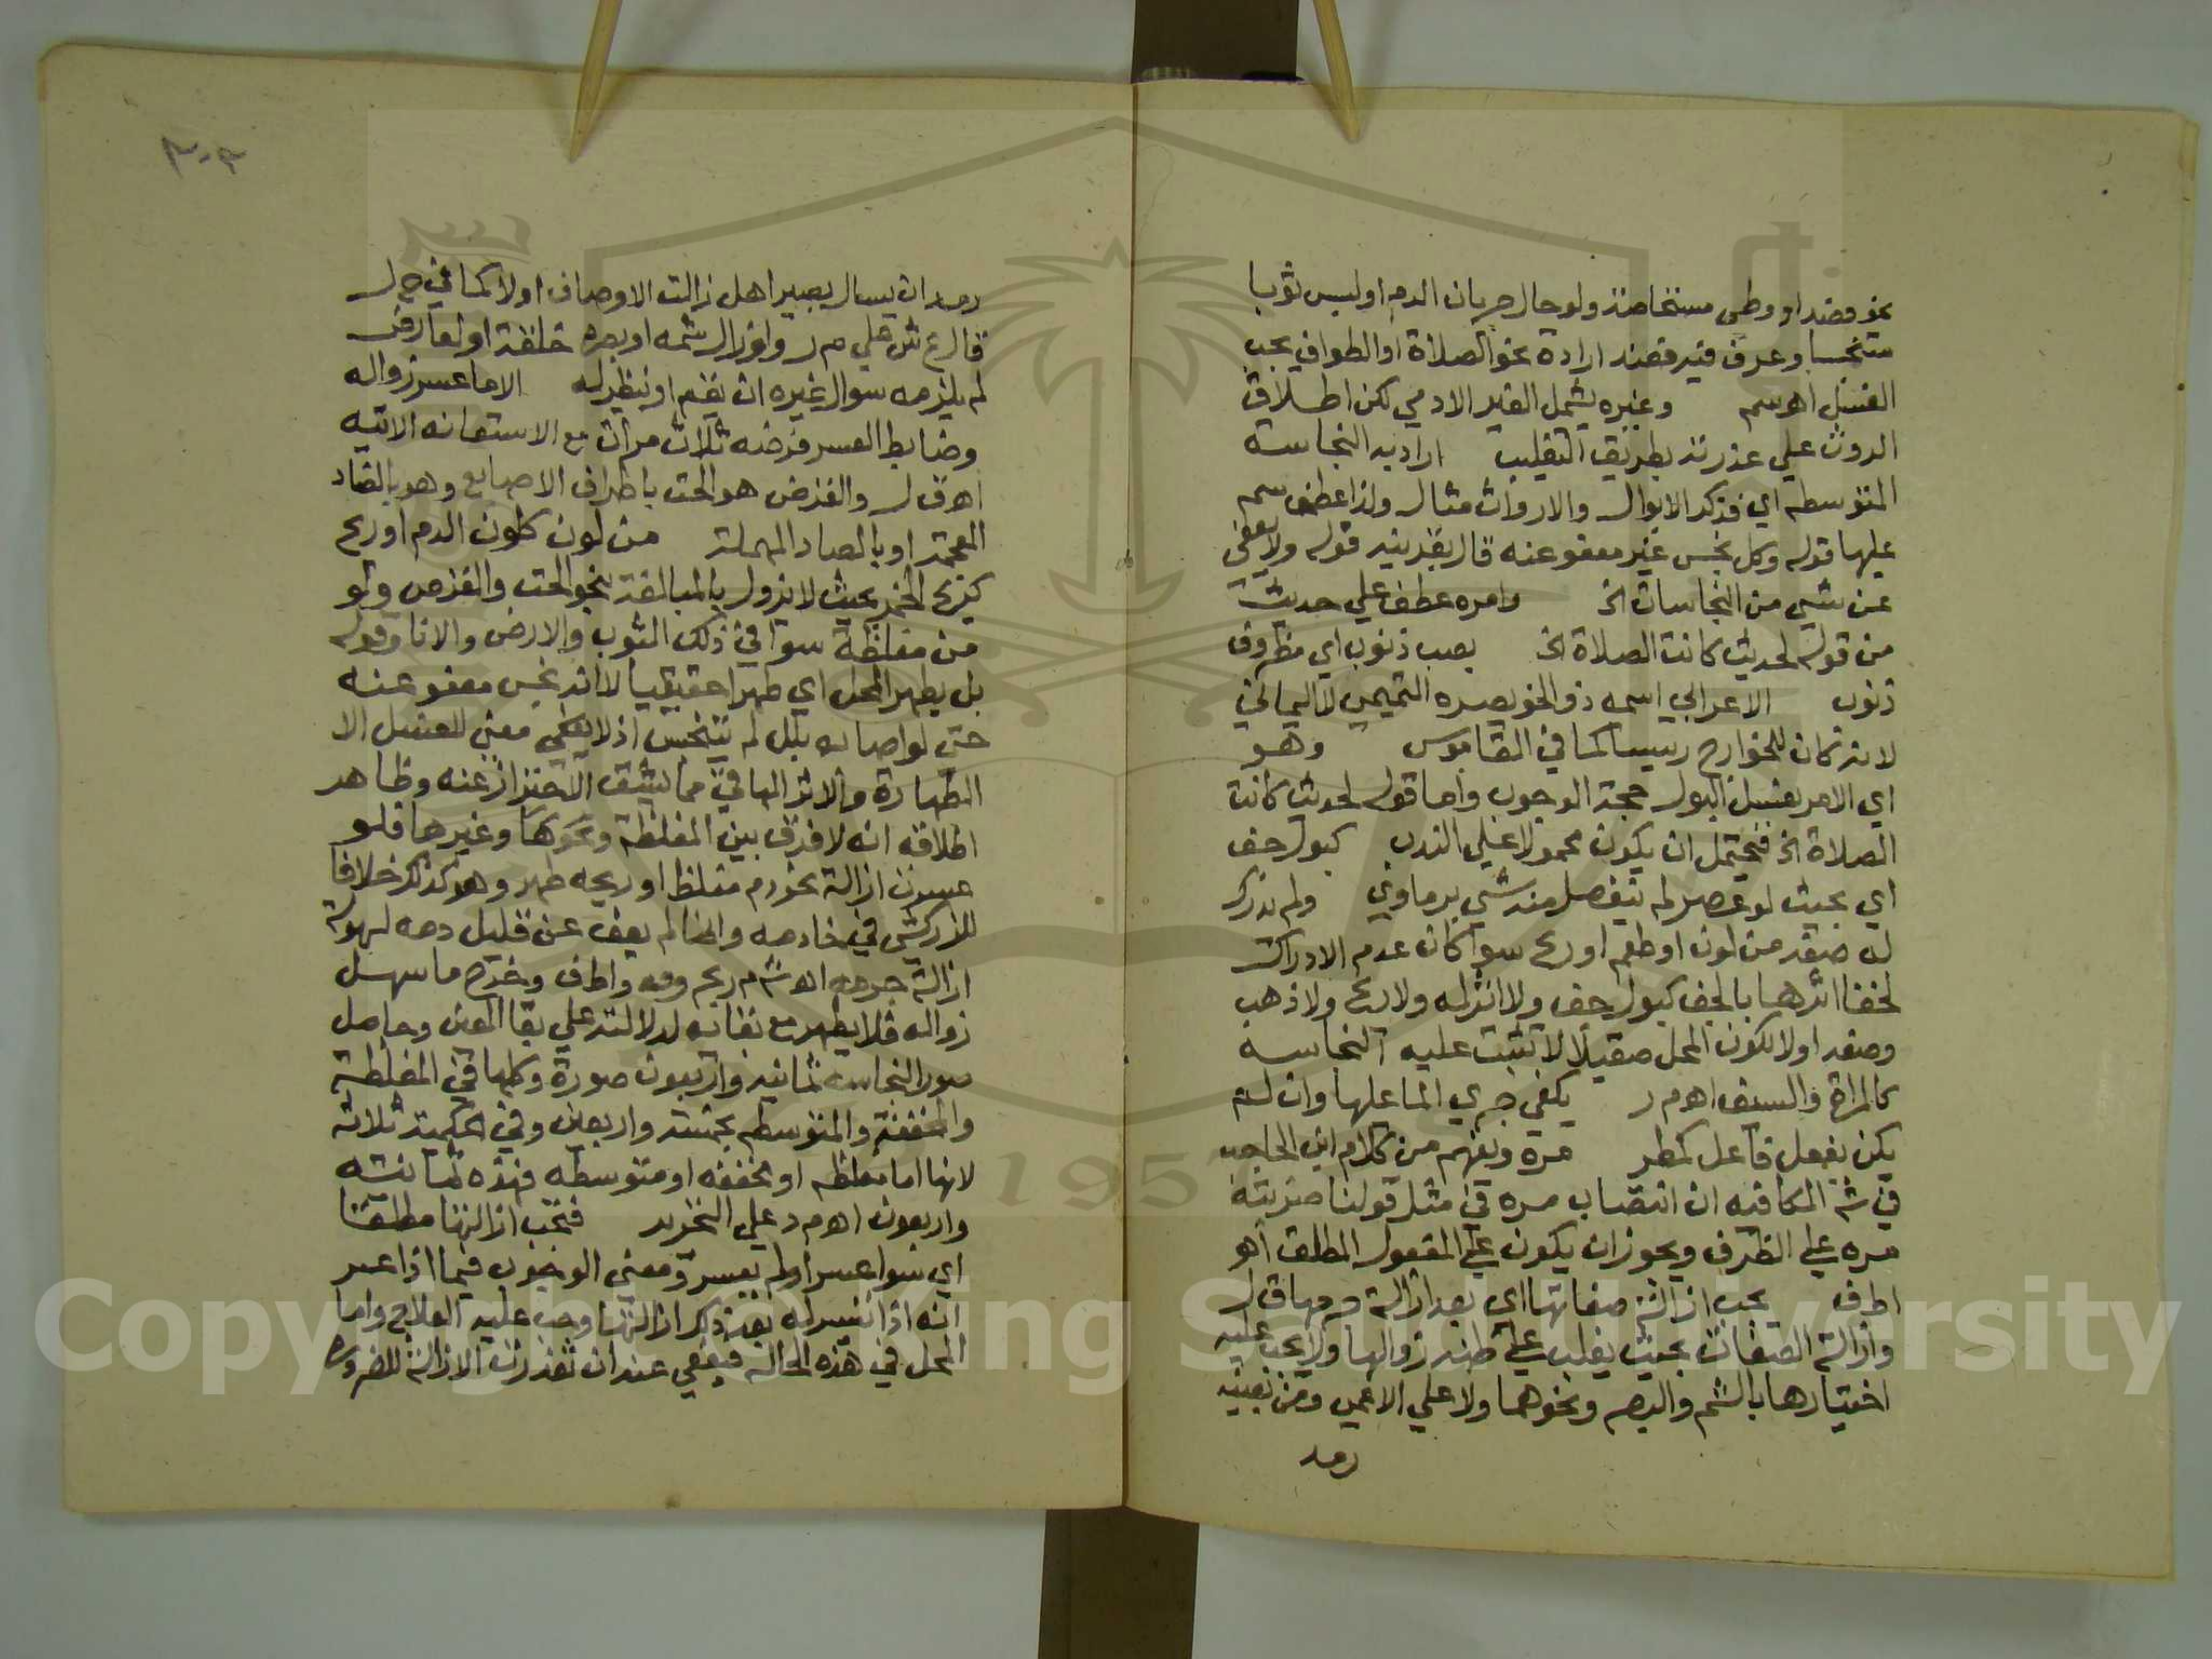 نحو فصد او وطي مستحاضة ولو حال جريان الدم او لبس ثوبا
متنجسا وعرق فيه فعند ارادة نحو الصلاة او الطواف يجب
الغسل اهـ سم وغيره يشمل الغير الادمي لكن اطلاق
الروث علي عذرته بطريق التغليب اراد به النجاسة
المتوسطه اي فذكر الابوال والارواث مثال ولذا عطف سم
عليها قوله وكل نجس غير معفو عنه قال بقرينه قوله ولا يعفي
عن شيي من النجاسات الخ وامره عطف علي حديث
من قوله لحديث كانت الصلاة الخ بصب ذنوب اي مظروف
ذنوب الاعرابي اسمه ذو الخويصره التميمي لا اليماني
لانه كان للخوارج رييسا كما في القاموس وهو
اي الامر بغسل البول حجة الوجوب واما قوله لحديث كانت
الصلاة الخ فيحتمل ان يكون محمولا علي الندب كبول جف
اي بحيث لو عصر لم ينفصل منه شي برماوي ولم تدرك
له صفه من لون او طعم او ريح سوا كان عدم الادراك
لخفا اثرها بالجف كبول جف ولا اثر له ولا ريح ولا ذهب
وصفه اولا لكون المحل صقيلا لا تثبت عليه النجاسه
كالمراة والسيف اهـ م ر يكفي جري الما عليها وان لم
يكن بفعل فاعل كمطر مرة ويفهم من كلام ابن الحاجب
في شـ الكافيه ان انتصاب مره في مثل قولنا ضربته
مره علي الظرف ويجوز ان يكون علي المفعول المطلق اهـ
اطف يجب ازالة صفاتها اي بعد ازالة جرمها ق ل
وازالة الصفات بحيث يغلب علي ظنه زوالها ولا يجب عليه
اختبارها بالشم والبصر ونحوهما ولا علي الاعمي ومن بعينه
رمد
٣٠٣
رمد ان يسال بصيرا هل زالت الاوصاف اولا كما في ح ل
قال ع ش علي م ر ولو زال شمه او بصره خلقة او لعارض
لم يلزمه سوال غيره ان يشم او ينظر له الا ما عسر زواله
وضابط العسر قرضه ثلاث مرات مع الاستعانه الاتيه
اهـ ق ل والقرض هو الحت باطراف الاصابع وهو بالضاد
المعجمة او بالصاد المهملة من لون كلون الدم او ريح
كريح الخمر بحيث لا يزول بالمبالغة بنحو الحت والقرص ولو
من مغلظة سوا في ذلك الثوب والارض والانا وقوله
بل يطهر المحل اي طهرا حقيقيا لا انه نجس معفو عنه
حتي لو اصابه بلل لم يتنجس اذ لا معني للغسل الا
الطهارة والاثر الباقي مما يشق الاحتراز عنه وظاهر
اطلاقه انه لا فرق بين المغلظة ونحوها وغيرها فلو
عسرت ازالة نحو دم مغلظ او ريحه طهر وهو كذلك خلافا
للزركشي في خادمه وانما لم يعف عن قليل دمه لسهولة
ازالة جرمه اهـ ش م ر وخرج ما سهل
زواله فلا يطهر مع بقائه لدلالته علي بقا العين وحاصل
صور النجاسه ثمانيه واربعون صورة وكلها في المغلظة
والمخففة والمتوسطه بخمسة واربعين وفي الحكمية ثلاثة
لانها اما مغلظه او مخففه او متوسطه فهذه ثمانية
واربعون اهـ م د علي التحرير فتجب ازالتها مطلقا
اي سوا عسر او لم يعسر ومعني الوجوب فيما اذا عسر
انه اذا تيسر له بعد ذلك ازالتها وجب عليه العلاج واما
المحل في هذه الحالة فيعفي عنه ان تعذرت الازالة للضرورة
Copyright © King Saud University
1957